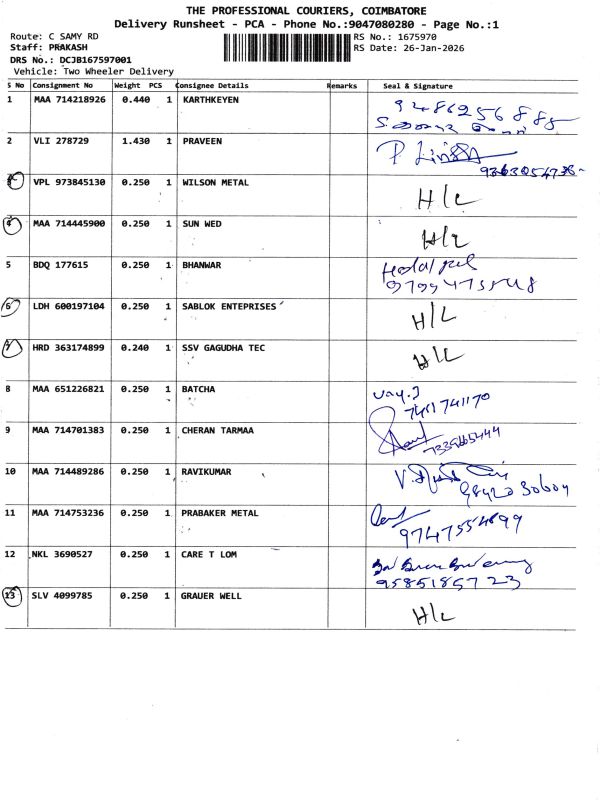 THE PROFESSIONAL COURIERS, COIMBATORE
Delivery Runsheet - PCA - Phone No.:9047080280 - Page No.:1
Route: C SAMY RD
RS No.: 1675970
Staff: PRAKASH
RS Date: 26-Jan-2026
DRS No.: DCJB167597001
Vehicle: Two Wheeler Delivery
S No Consignment No Weight PCS Consignee Details Remarks Seal & Signature
1 MAA 714218926 0.440 1 KARTHKEYEN 9486256888
2 VLI 278729 1.430 1 PRAVEEN P
3 VPL 973845130 0.250 1 WILSON METAL H/L
4 MAA 714445900 0.250 1 SUN WED H/L
5 BDQ 177615 0.250 1 BHANWAR
6 LDH 600197104 0.250 1 SABLOK ENTEPRISES H/L
7 HRD 363174899 0.240 1 SSV GAGUDHA TEC H/L
8 MAA 651226821 0.250 1 BATCHA
7411741170
9 MAA 714701383 0.250 1 CHERAN TARMAA
10 MAA 714489286 0.250 1 RAVIKUMAR
11 MAA 714753236 0.250 1 PRABAKER METAL
9747554899
12 NKL 3690527 0.250 1 CARE T LOM
9585185723
13 SLV 4099785 0.250 1 GRAUER WELL H/L